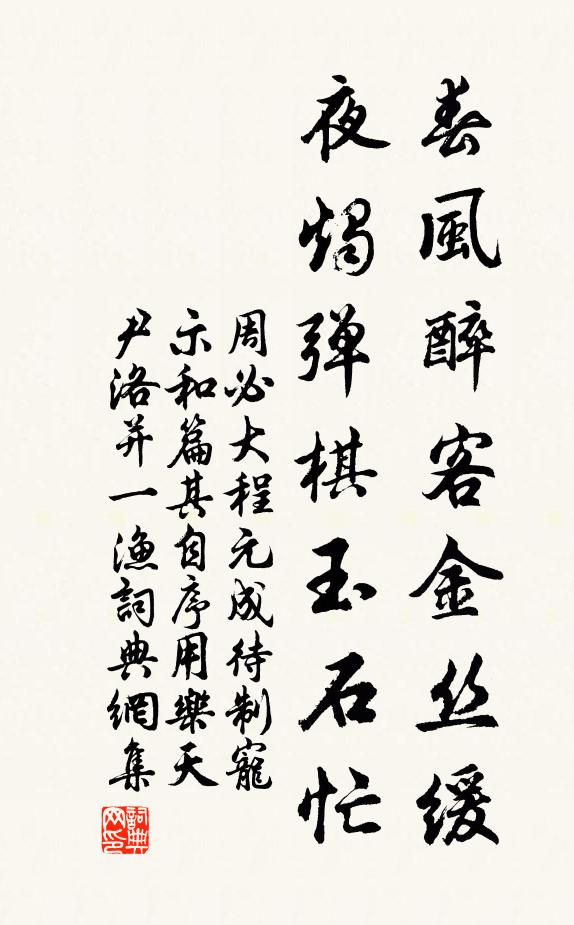 春風醉客金丝緩
夜燭弹棋玉石忙
周必大程元成待制寵
示和篇其自序用樂天
尹洛并一漁詞典網集
詞典网印